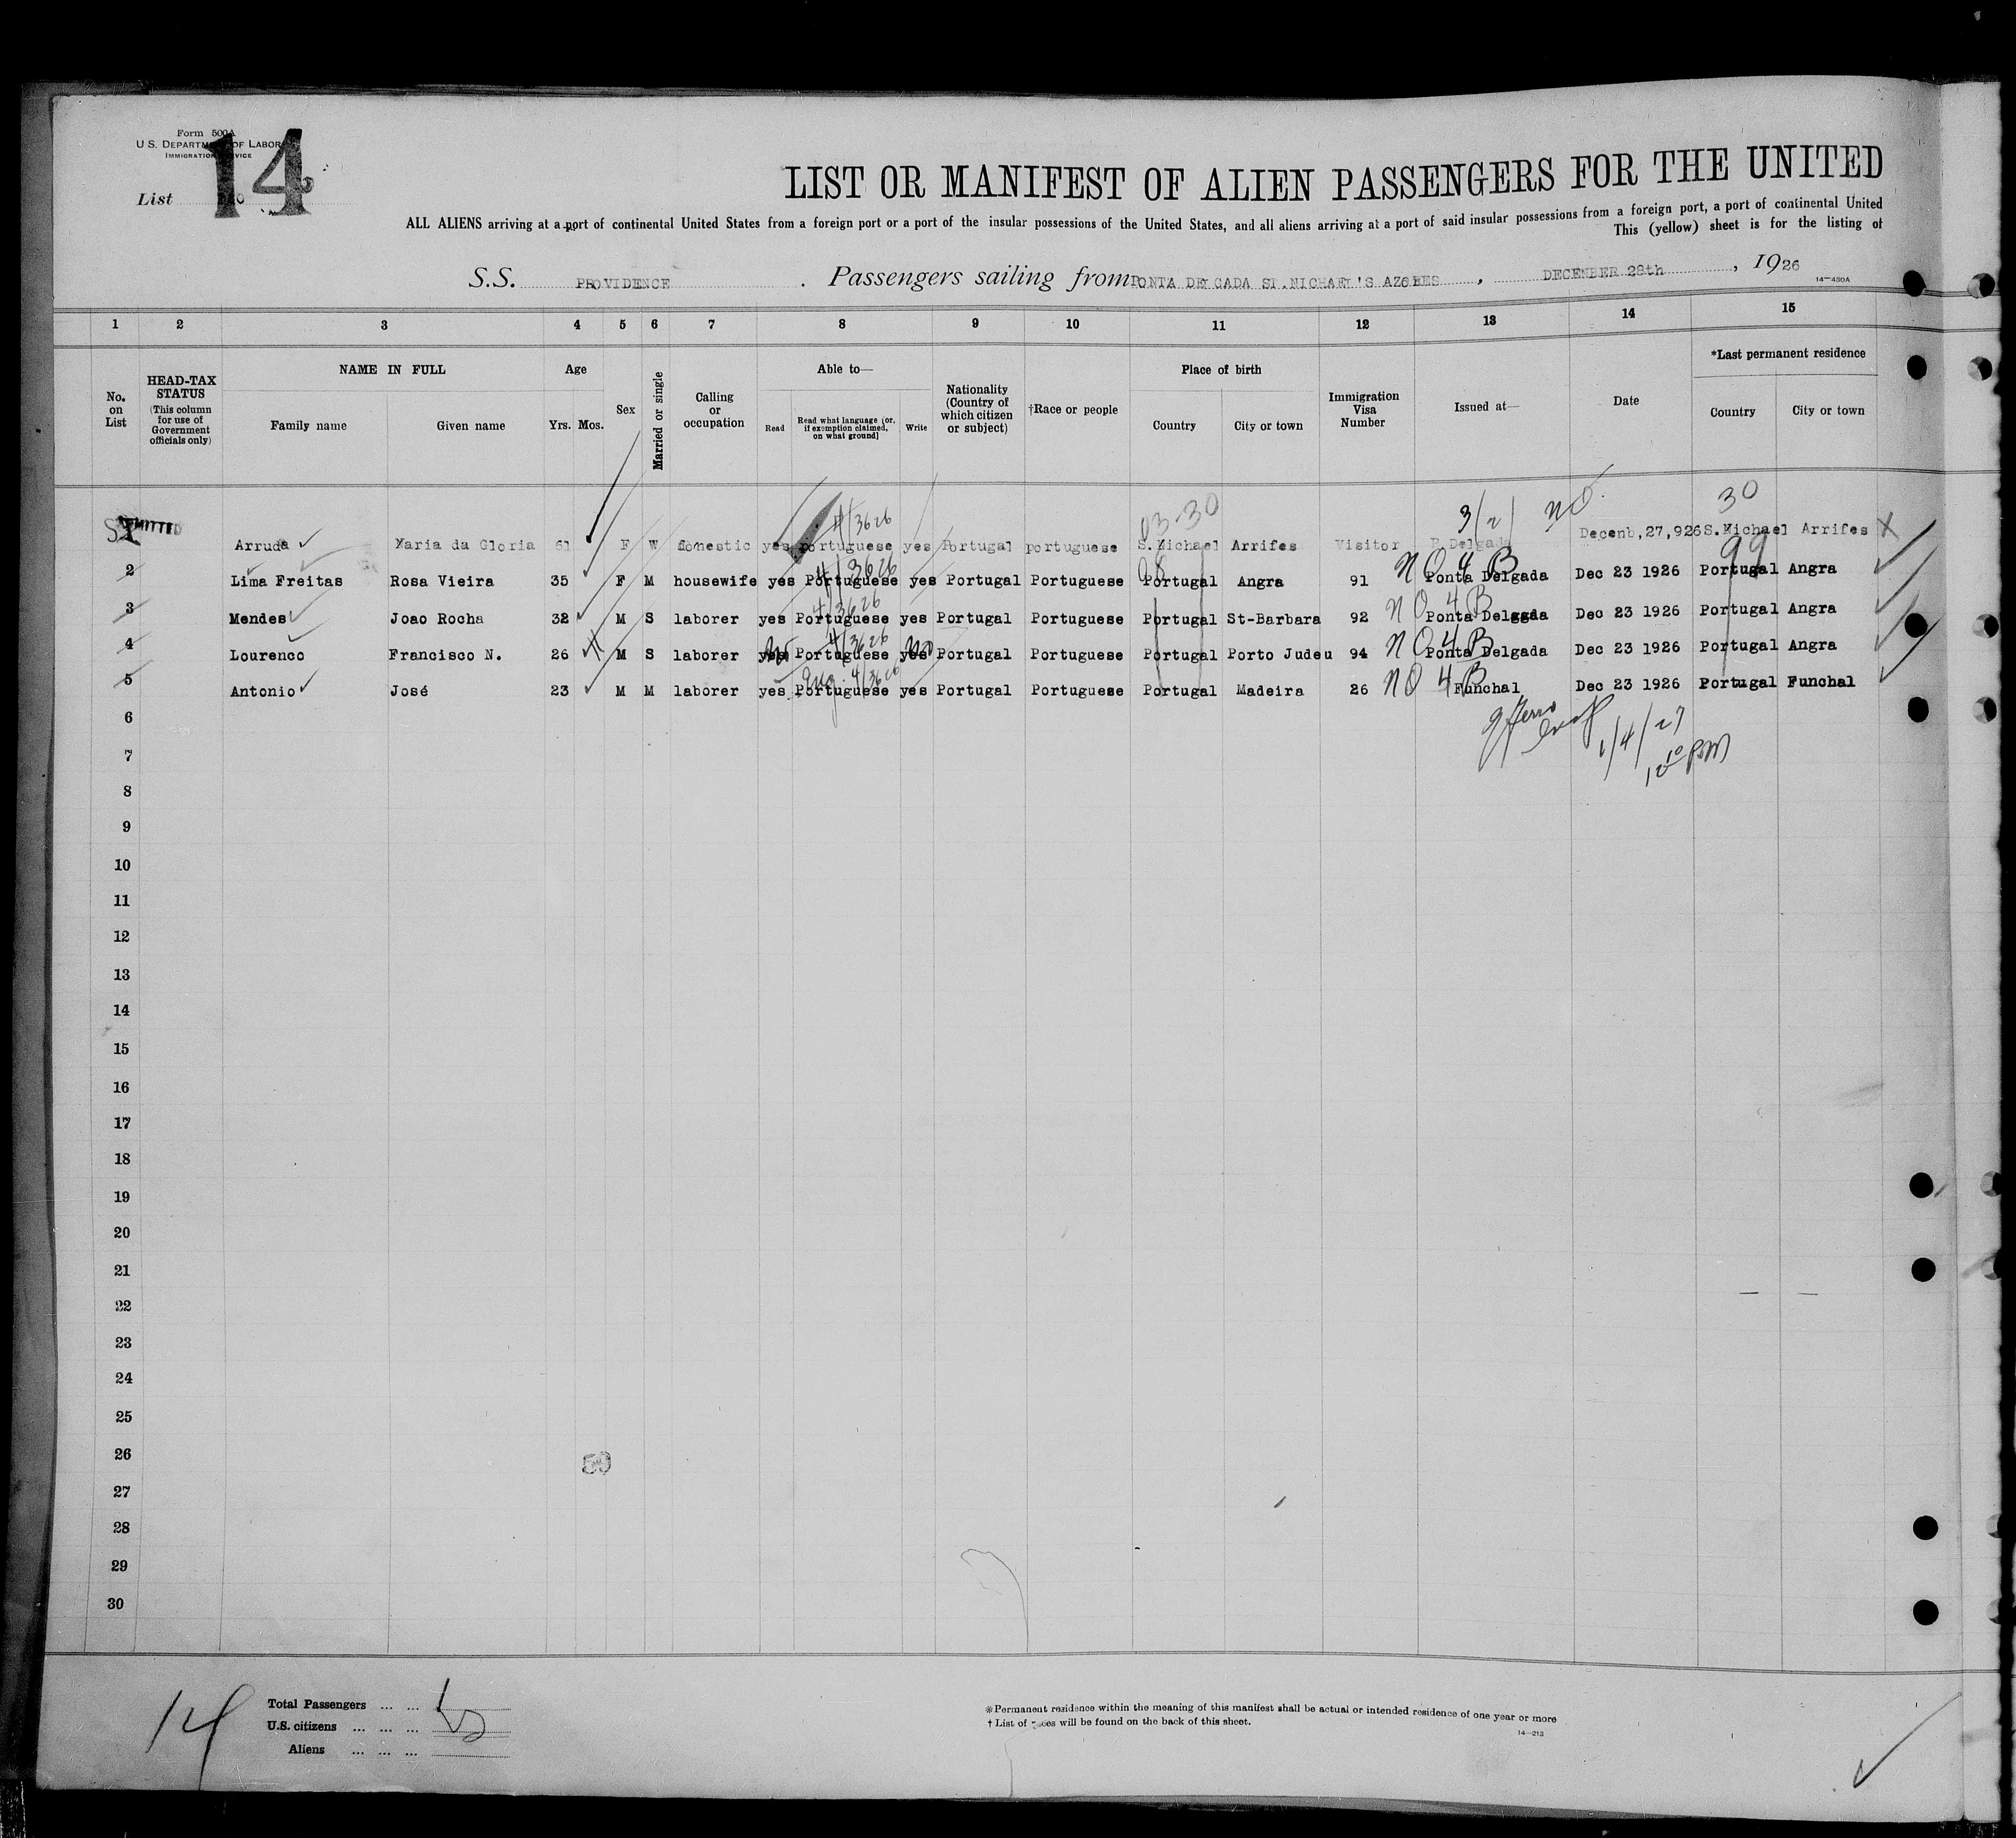 Form 500A
U.S. DEPARTMENT OF LABOR
IMMIGRATION SERVICE
List 14
LIST OR MANIFEST OF ALIEN PASSENGERS FOR THE UNITED
ALL ALIENS arriving at a port of continental United States from a foreign port or a port of the insular possessions of the United States, and all aliens arriving at a port of said insular possessions from a foreign port, a port of continental United
This (yellow) sheet is for the listing of
S.S. PROVIDENCE . Passengers sailing from PONTA DELGADA ST.MICHAEL'S AZORES , DECEMBER 28th , 1926
14—430A
1 2 3 4 5 6 7 8 9 10 11 12 13 14 15
No. on List
HEAD-TAX STATUS (This column for use of Government officials only)
NAME IN FULL
Family name Given name
Age
Yrs. Mos.
Sex
Married or single
Calling or occupation
Able to—
Read
Read what language [or, if exemption claimed, on what ground]
Write
Nationality (Country of which citizen or subject)
†Race or people
Place of birth
Country City or town
Immigration Visa Number
Issued at—
Date
*Last permanent residence
Country City or town
4/3626 03-30 3/2/ NO. 30
ADMITTED
Arruda Maria da Gloria 61 F W domestic yes portuguese yes Portugal portuguese S.Michael Arrifes Visitor P.Delgada Decenb,27,926 S.Michael Arrifes X
4/3626 08 NO 4 B 99
2 Lima Freitas Rosa Vieira 35 F M housewife yes Portuguese yes Portugal Portuguese Portugal Angra 91 Ponta Delgada Dec 23 1926 Portugal Angra
4/3626 NO 4 B
3 Mendes Joao Rocha 32 M S laborer yes Portuguese yes Portugal Portuguese Portugal St-Barbara 92 Ponta Delggda Dec 23 1926 Portugal Angra
4/3626 NO 4 B
4 Lourenco Francisco N. 26 M S laborer yes no Portuguese yes no Portugal Portuguese Portugal Porto Judeu 94 Ponta Delgada Dec 23 1926 Portugal Angra
4/3626 NO 4 B
5 Antonio José 23 M M laborer yes Portuguese yes Portugal Portuguese Portugal Madeira 26 Funchal Dec 23 1926 Portugal Funchal
6
1/4/27
7
12 10 PM
8
9
10
11
12
13
14
15
16
17
18
19
20
21
22
23
24
25
26
27
28
29
30
14
Total Passengers ... ...
U.S. citizens ... ... ...
Aliens ... ... ...
*Permanent residence within the meaning of this manifest shall be actual or intended residence of one year or more
† List of races will be found on the back of this sheet.
14—213